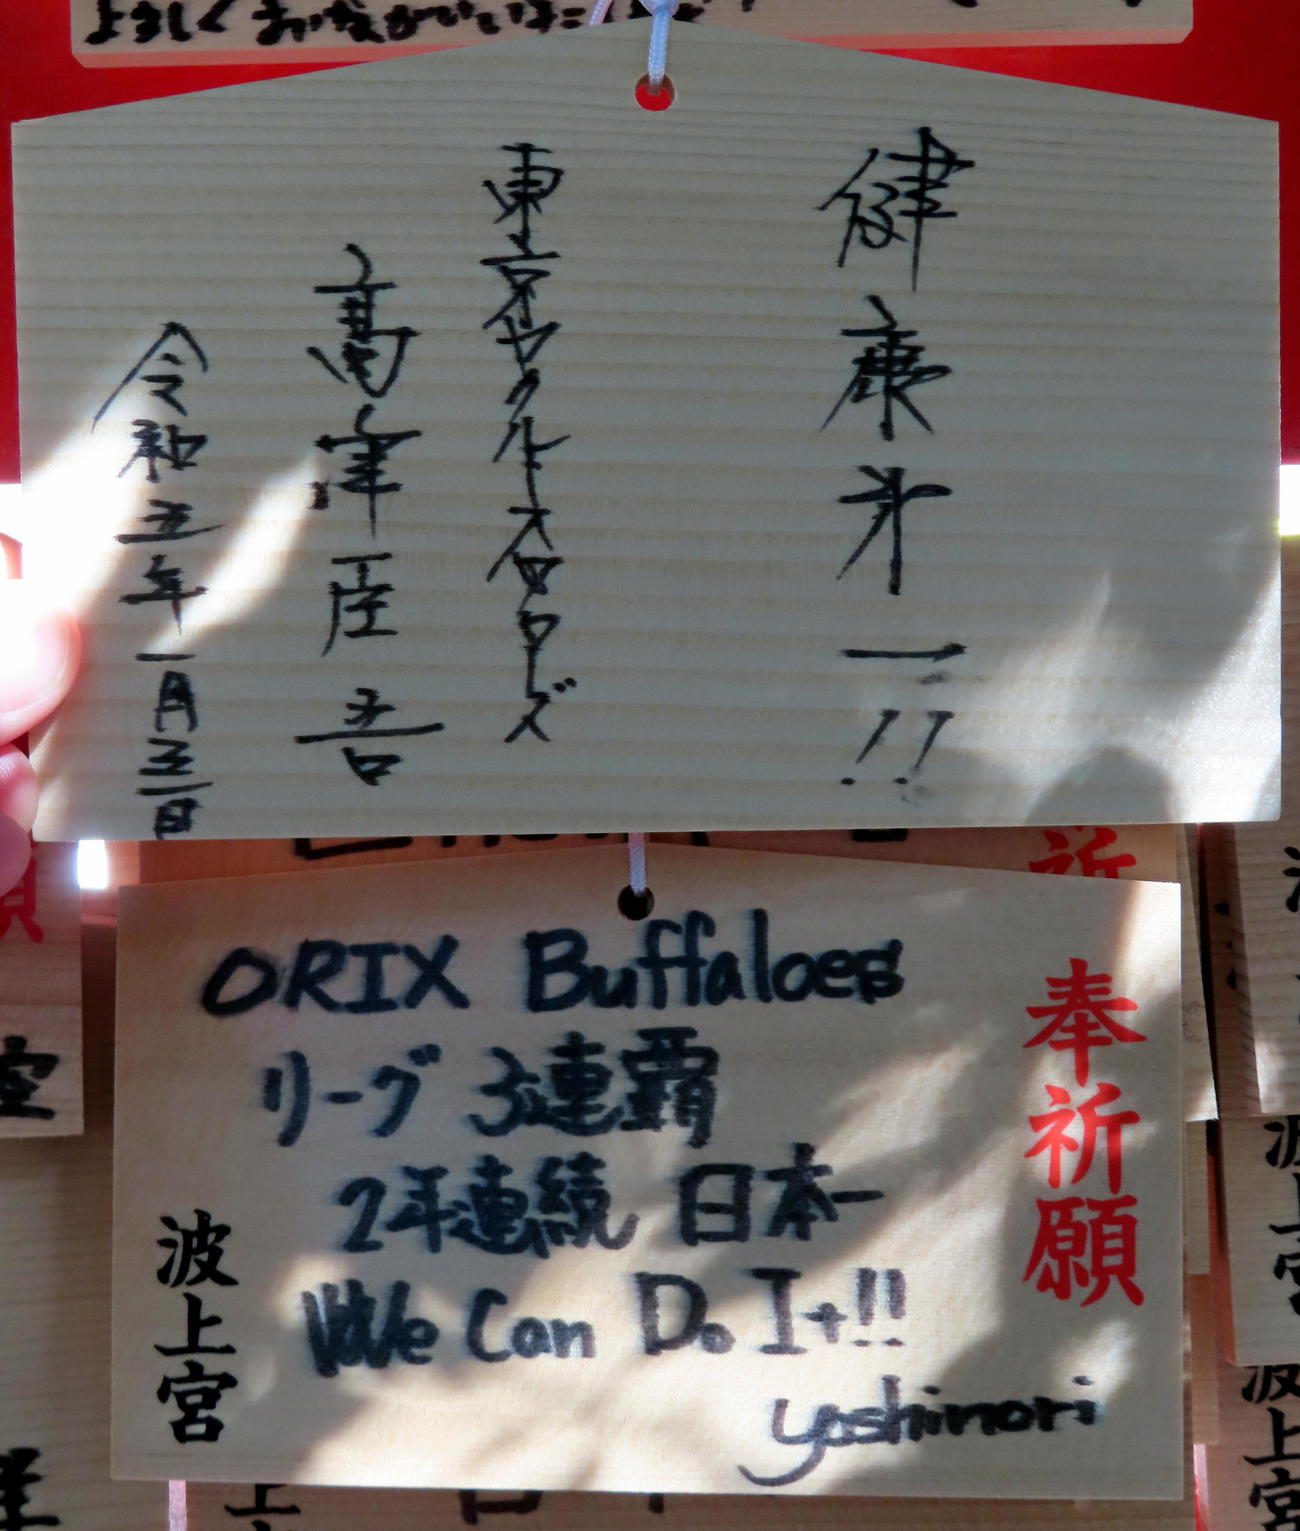 よろしくおねがいいたします
健康第一!!
東京ヤクルトスワローズ
髙津臣吾
令和五年一月三日
奉祈願
ORIX Buffaloes
リーグ 3連覇
2年連続 日本一
We Can Do It!!
yoshinori
波上宮